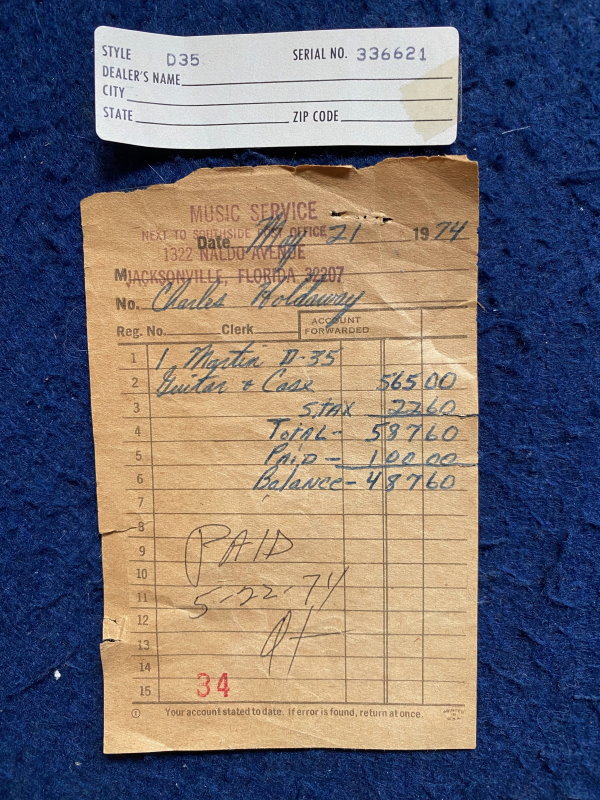 STYLE D35 SERIAL NO. 336621
DEALER'S NAME
CITY
STATE ZIP CODE
MUSIC SERVICE
NEXT TO SOUTHSIDE POST OFFICE
Date May 21 1974
1322 NALDO AVENUE
M
JACKSONVILLE, FLORIDA 32207
No. Charles Holdaway
Reg. No. Clerk ACCOUNT FORWARDED
1 1 Martin D-35
2 Guitar & Case 565 00
3 S. TAX 22 60
4 TOTAL - 587 60
5 PAID - 100 00
6 Balance - 487 60
7
8
9 PAID
10
11 5-22-74
12
13
14
15 34
Your account stated to date. If error is found, return at once.